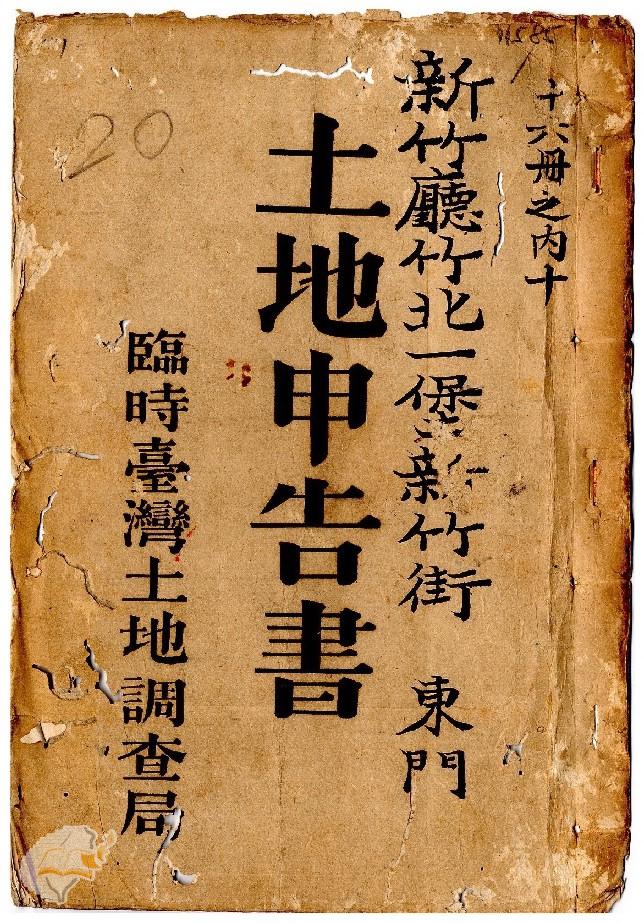 十六冊之内十
新竹廳竹北一堡新竹街 東門
土地申告書
臨時臺灣土地調查局
20